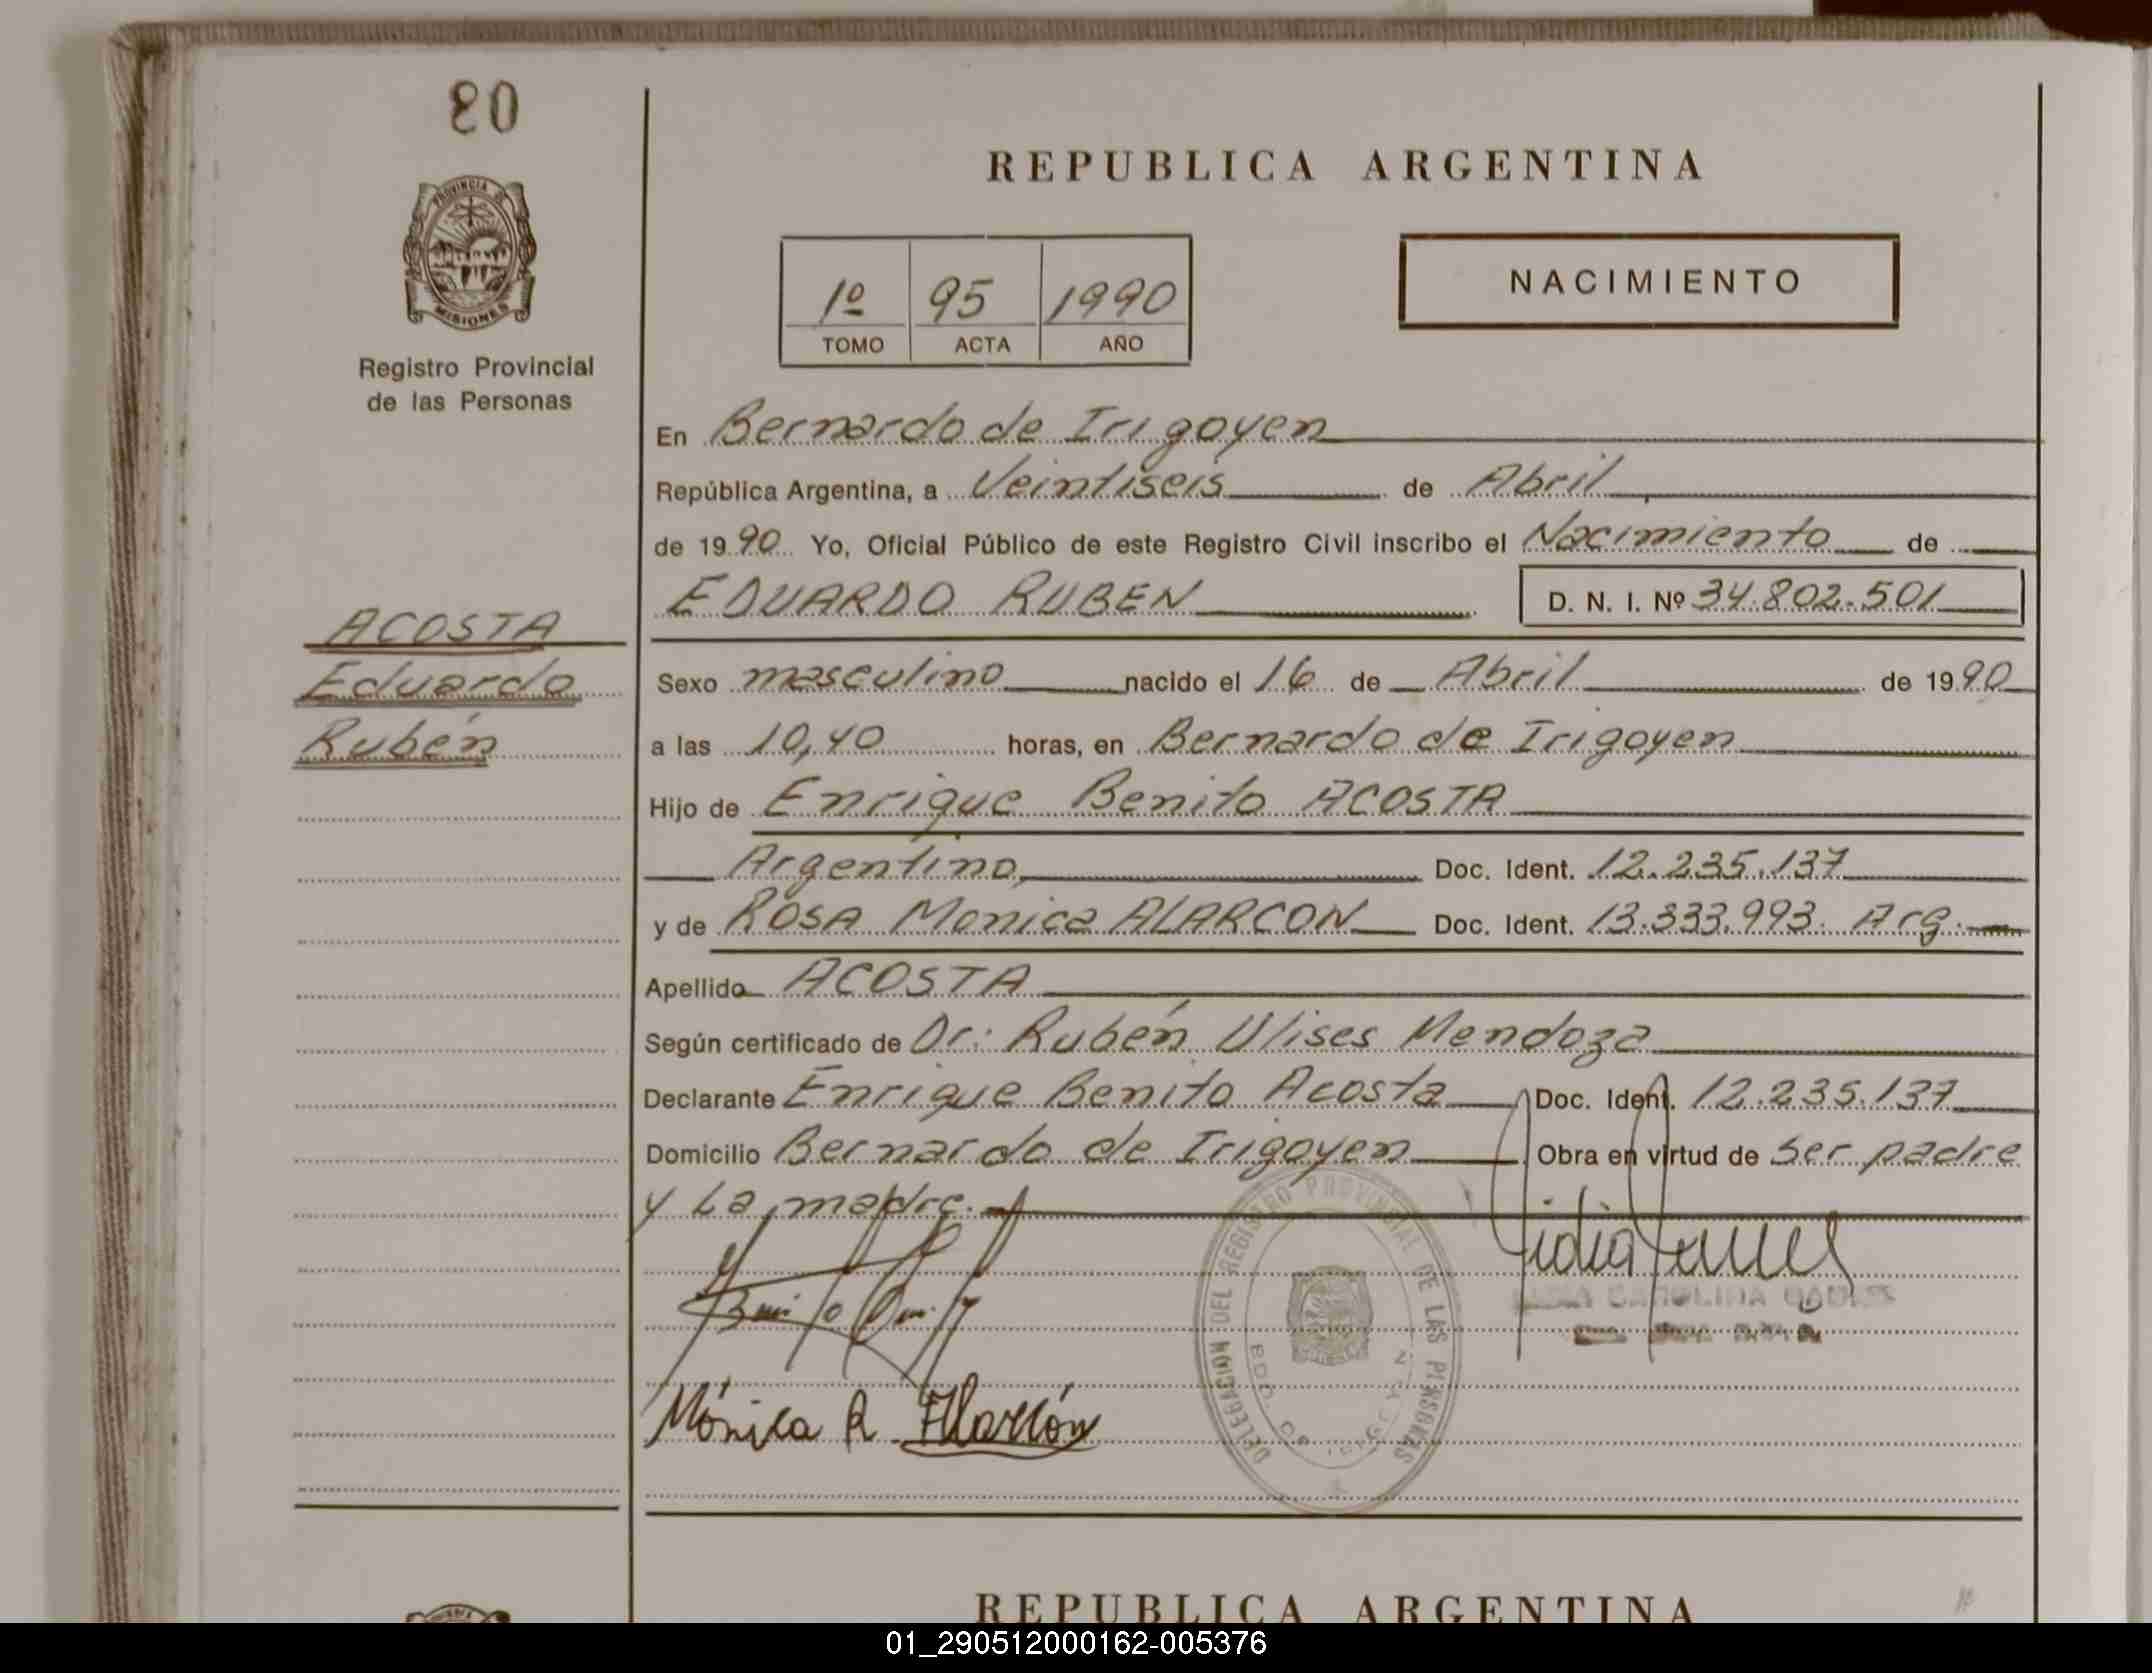 80
PROVINCIA DE
MISIONES
Registro Provincial
de las Personas
ACOSTA
Eduardo
Rubén
REPUBLICA ARGENTINA
1º 95 1990
TOMO ACTA AÑO
NACIMIENTO
En Bernardo de Irigoyen
República Argentina, a Veintiseis de Abril
de 1990 Yo, Oficial Público de este Registro Civil inscribo el Nacimiento de
EDUARDO RUBEN D. N. I. Nº 34.802.501
Sexo masculino nacido el 16 de Abril de 1990
a las 10,40 horas, en Bernardo de Irigoyen
Hijo de Enrique Benito ACOSTA
Argentino, Doc. Ident. 12.235.137
y de ROSA Monica ALARCON Doc. Ident. 13.333.993. Arg.
Apellido ACOSTA
Según certificado de Dr: Rubén Ulises Mendoza
Declarante Enrique Benito Acosta Doc. Ident. 12.235.137
Domicilio Bernardo de Irigoyen Obra en virtud de ser padre
y La madre.
DELEGACION DEL REGISTRO PROVINCIAL DE LAS PERSONAS
BDO. DE IRIGOYEN
CAROLINA
Mónica R. Alarcón
REPUBLICA ARGENTINA
01_290512000162-005376